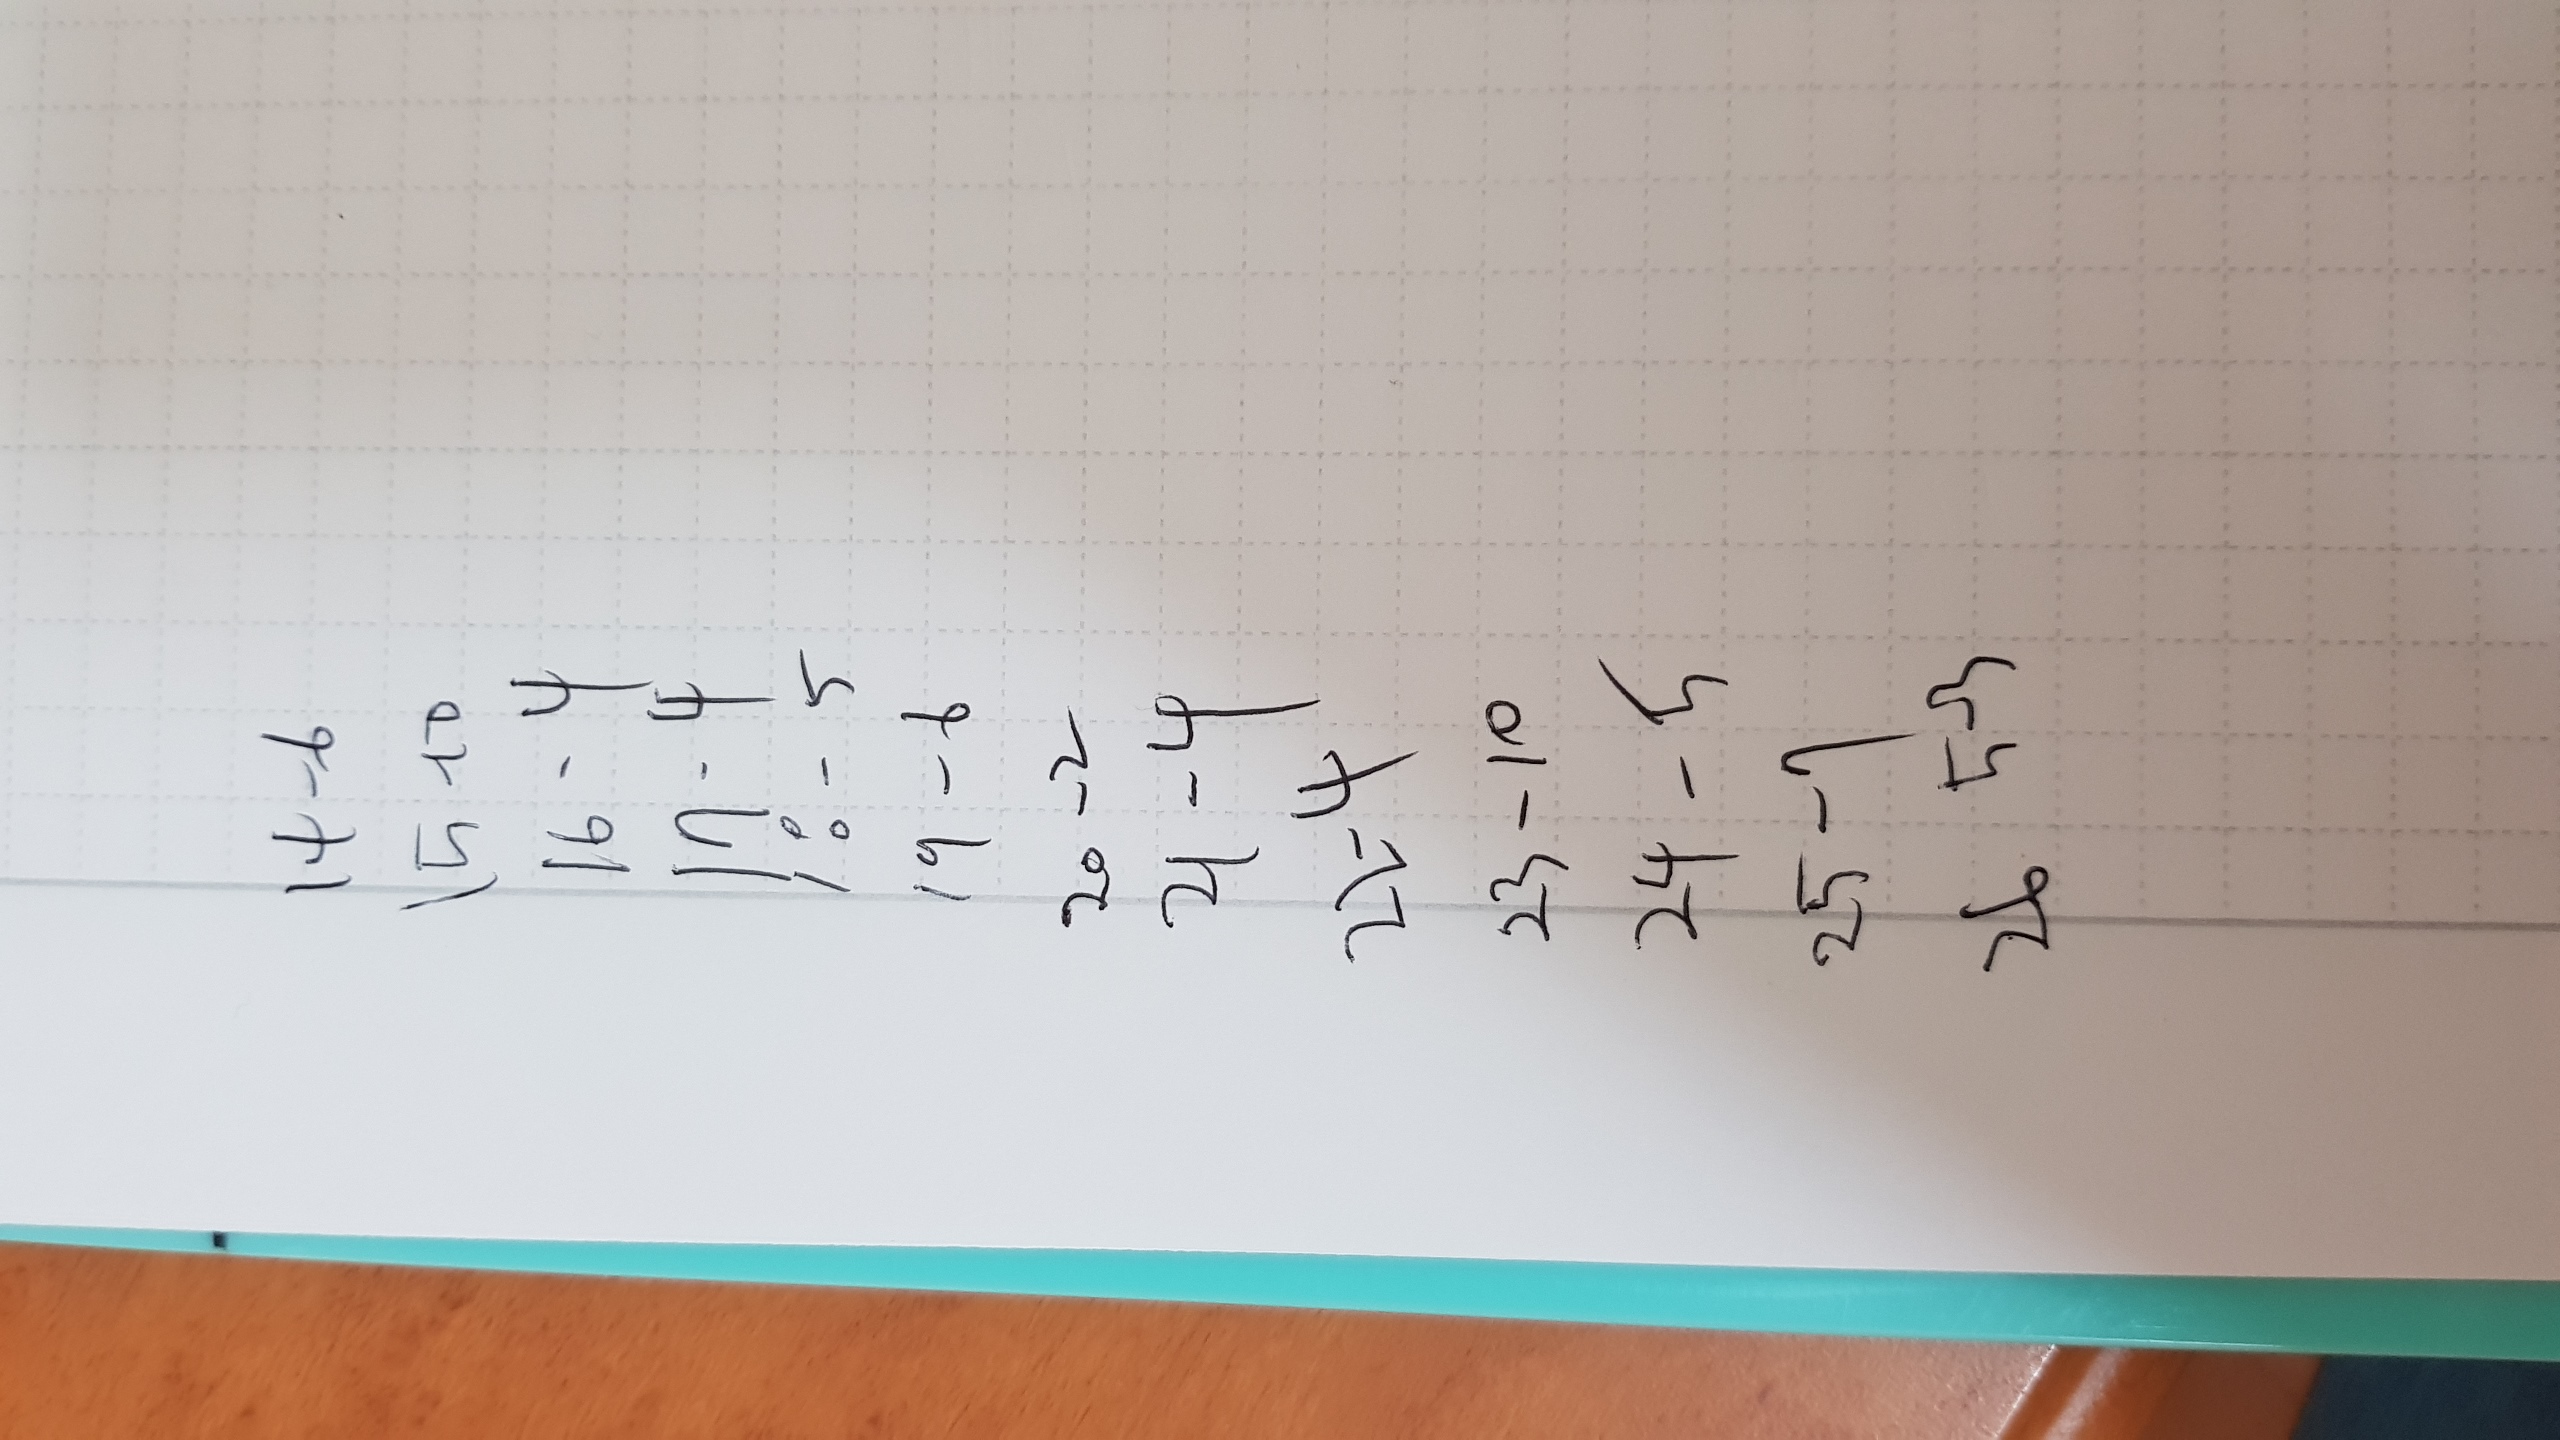 14-6
15-10
16-4
17-4
18-5
19-6
20-2
21-4
22-4
23-10
24-5
25-7
26 5-3